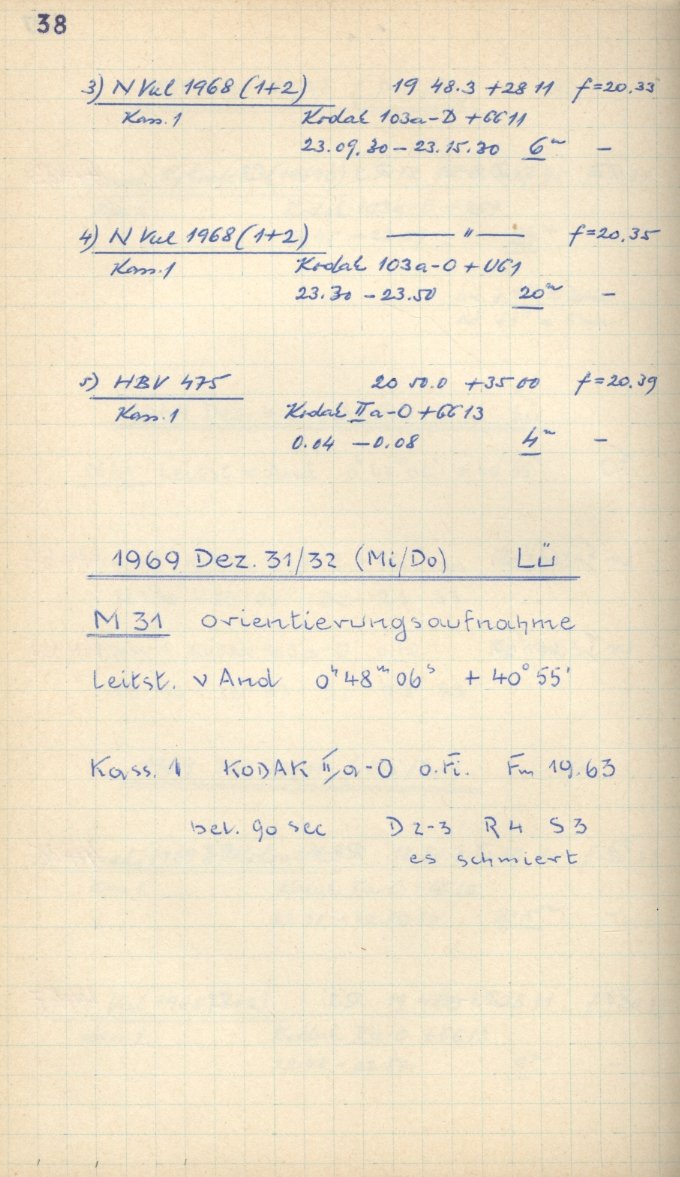 38
3) N Vul 1968 (1+2) 19 48.3 +28 11 f=20.33
Kass. 1 Kodak 103a-D + GG11
23.09.30 – 23.15.30 6ᵐ –
4) N Vul 1968 (1+2) —— " —— f=20.35
Kass. 1 Kodak 103a-O + UG1
23.30 – 23.50 20ᵐ –
5) HBV 475 20 50.0 +35 00 f=20.39
Kass. 1 Kodak IIa-O + GG13
0.04 – 0.08 4ᵐ –
1969 Dez. 31/32 (Mi/Do) Lü
M 31 Orientierungsaufnahme
Leitst. ν And 0ʰ48ᵐ06ˢ + 40°55'
Kass. 1 KODAK II/a-O o.Fi. Fm 19.63
bel. 90 sec D 2-3 R 4 S 3
es schmiert